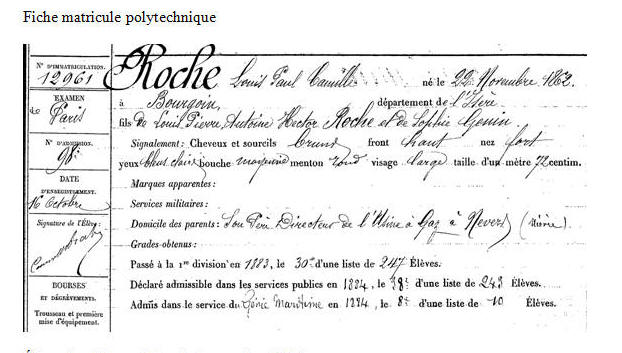 Fiche matricule polytechnique
N° D'IMMATRICULATION.
12961
EXAMEN
de Paris
N° D'ADMISSION.
98
DATE
D'ENREGISTREMENT.
16 Octobre
Signature de l'Élève.
BOURSES
ET DÉGRÈVEMENTS.
Trousseau et première
mise d'équipement.
Roche Louis Paul Camille né le 22 Novembre 1862
à Bourgoin, département de l'Isère
fils de Louis Pierre Antoine Hector Roche et de Sophie Genin
Signalement: Cheveux et sourcils bruns front haut nez fort
yeux bleus clairs bouche moyenne menton rond visage large taille d'un mètre 72 centim.
Marques apparentes:
Services militaires:
Domicile des parents: Son Père Directeur de l'Usine à Gaz à Nevers (Nièvre)
Grades obtenus:
Passé à la 1re division en 1883, le 30e d'une liste de 247 Élèves.
Déclaré admissible dans les services publics en 1884, le 38e d'une liste de 243 Élèves.
Admis dans le service du Génie Maritime en 1884, le 8e d'une liste de 10 Élèves.